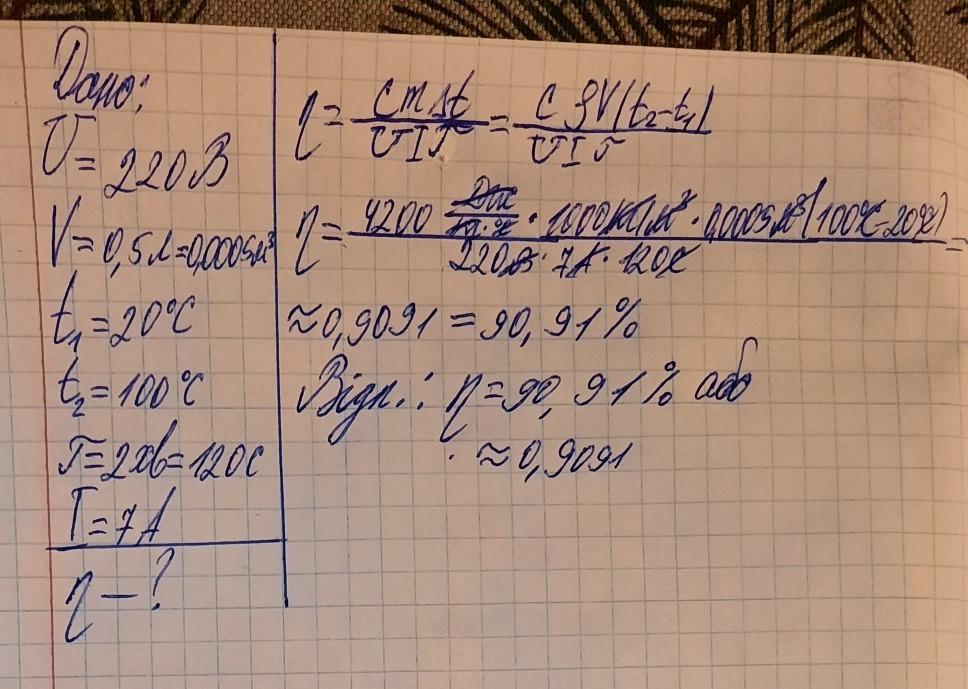 Дано:
U = 220 В
V = 0,5 л = 0,0005 м³
t₁ = 20°C
t₂ = 100°C
τ = 2 хв = 120 с
I = 7 А
η — ?
η = cmΔt / UIτ = cρV(t₂ - t₁) / UIτ
η = 4200 Дж/кг·°C · 1000 кг/м³ · 0,0005 м³ (100°C - 20°C) / 220 В · 7 А · 120 с =
≈ 0,9091 = 90,91%
Відп.: η = 90,91% або
≈ 0,9091